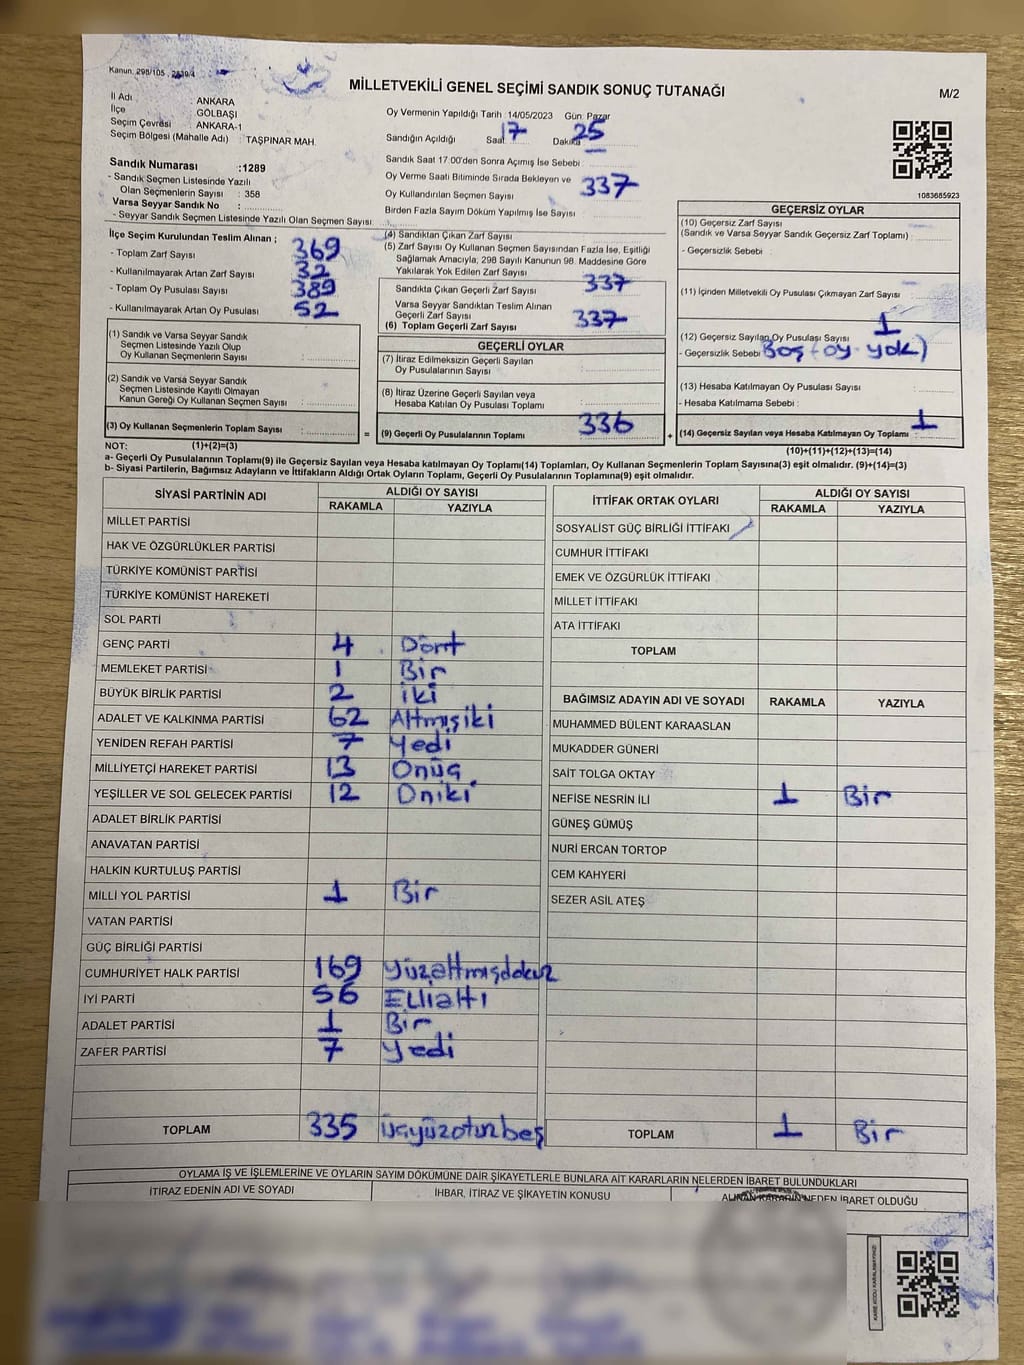 Kanun: 298/105 , 2839/4
MİLLETVEKİLİ GENEL SEÇİMİ SANDIK SONUÇ TUTANAĞI
M/2
İl Adı : ANKARA
İlçe : GÖLBAŞI
Seçim Çevresi : ANKARA-1
Seçim Bölgesi (Mahalle Adı) : TAŞPINAR MAH.
Sandık Numarası :1289
- Sandık Seçmen Listesinde Yazılı
Olan Seçmenlerin Sayısı : 358
Varsa Seyyar Sandık No :
- Seyyar Sandık Seçmen Listesinde Yazılı Olan Seçmen Sayısı:
Oy Vermenin Yapıldığı Tarih :14/05/2023 Gün: Pazar
Sandığın Açıldığı Saat: 17 Dakika: 25
Sandık Saat 17:00'den Sonra Açımış İse Sebebi :
Oy Verme Saati Bitiminde Sırada Bekleyen ve
Oy Kullandırılan Seçmen Sayısı : 337
Birden Fazla Sayım Döküm Yapılmış İse Sayısı :
1083685923
İlçe Seçim Kurulundan Teslim Alınan ;
- Toplam Zarf Sayısı : 369
- Kullanılmayarak Artan Zarf Sayısı : 32
- Toplam Oy Pusulası Sayısı : 389
- Kullanılmayarak Artan Oy Pusulası : 52
(1) Sandık ve Varsa Seyyar Sandık
Seçmen Listesinde Yazılı Olup
Oy Kullanan Seçmenlerin Sayısı :
(2) Sandık ve Varsa Seyyar Sandık
Seçmen Listesinde Kayıtlı Olmayan
Kanun Gereği Oy Kullanan Seçmen Sayısı :
(3) Oy Kullanan Seçmenlerin Toplam Sayısı :
=
(4) Sandıktan Çıkan Zarf Sayısı :
(5) Zarf Sayısı Oy Kullanan Seçmen Sayısından Fazla İse, Eşitliği
Sağlamak Amacıyla; 298 Sayılı Kanunun 98. Maddesine Göre
Yakılarak Yok Edilen Zarf Sayısı :
Sandıkta Çıkan Geçerli Zarf Sayısı : 337
Varsa Seyyar Sandıktan Teslim Alınan
Geçerli Zarf Sayısı :
(6) Toplam Geçerli Zarf Sayısı : 337
GEÇERLİ OYLAR
(7) İtiraz Edilmeksizin Geçerli Sayılan
Oy Pusulalarının Sayısı :
(8) İtiraz Üzerine Geçerli Sayılan veya
Hesaba Katılan Oy Pusulası Toplamı :
(9) Geçerli Oy Pusulalarının Toplamı : 336
+
GEÇERSİZ OYLAR
(10) Geçersiz Zarf Sayısı
(Sandık ve Varsa Seyyar Sandık Geçersiz Zarf Toplamı) :
- Geçersizlik Sebebi :
(11) İçinden Milletvekili Oy Pusulası Çıkmayan Zarf Sayısı :
(12) Geçersiz Sayılan Oy Pusulası Sayısı : 1
- Geçersizlik Sebebi : Boş (oy yok)
(13) Hesaba Katılmayan Oy Pusulası Sayısı :
- Hesaba Katılmama Sebebi :
(14) Geçersiz Sayılan veya Hesaba Katılmayan Oy Toplamı : 1
NOT: (1)+(2)=(3)
(10)+(11)+(12)+(13)=(14)
a- Geçerli Oy Pusulalarının Toplamı(9) ile Geçersiz Sayılan veya Hesaba katılmayan Oy Toplamı(14) Toplamları, Oy Kullanan Seçmenlerin Toplam Sayısına(3) eşit olmalıdır. (9)+(14)=(3)
b- Siyasi Partilerin, Bağımsız Adayların ve İttifakların Aldığı Ortak Oyların Toplamı, Geçerli Oy Pusulalarının Toplamına(9) eşit olmalıdır.
SİYASİ PARTİNİN ADI
ALDIĞI OY SAYISI
RAKAMLA YAZIYLA
MİLLET PARTİSİ
HAK VE ÖZGÜRLÜKLER PARTİSİ
TÜRKİYE KOMÜNİST PARTİSİ
TÜRKİYE KOMÜNİST HAREKETİ
SOL PARTİ
GENÇ PARTİ 4 Dört
MEMLEKET PARTİSİ 1 Bir
BÜYÜK BİRLİK PARTİSİ 2 iki
ADALET VE KALKINMA PARTİSİ 62 Altmışiki
YENİDEN REFAH PARTİSİ 7 Yedi
MİLLİYETÇİ HAREKET PARTİSİ 13 Onüç
YEŞİLLER VE SOL GELECEK PARTİSİ 12 Oniki
ADALET BİRLİK PARTİSİ
ANAVATAN PARTİSİ
HALKIN KURTULUŞ PARTİSİ
MİLLİ YOL PARTİSİ 1 Bir
VATAN PARTİSİ
GÜÇ BİRLİĞİ PARTİSİ
CUMHURİYET HALK PARTİSİ 169 Yüzaltmışdokuz
İYİ PARTİ 56 Ellialtı
ADALET PARTİSİ 1 Bir
ZAFER PARTİSİ 7 Yedi
TOPLAM 335 üçyüzotuzbeş
İTTİFAK ORTAK OYLARI
ALDIĞI OY SAYISI
RAKAMLA YAZIYLA
SOSYALİST GÜÇ BİRLİĞİ İTTİFAKI
CUMHUR İTTİFAKI
EMEK VE ÖZGÜRLÜK İTTİFAKI
MİLLET İTTİFAKI
ATA İTTİFAKI
TOPLAM
BAĞIMSIZ ADAYIN ADI VE SOYADI RAKAMLA YAZIYLA
MUHAMMED BÜLENT KARAASLAN
MUKADDER GÜNERİ
SAİT TOLGA OKTAY
NEFİSE NESRİN İLİ 1 Bir
GÜNEŞ GÜMÜŞ
NURİ ERCAN TORTOP
CEM KAHYERİ
SEZER ASİL ATEŞ
TOPLAM 1 Bir
OYLAMA İŞ VE İŞLEMLERİNE VE OYLARIN SAYIM DÖKÜMÜNE DAİR ŞİKAYETLERLE BUNLARA AİT KARARLARIN NELERDEN İBARET BULUNDUKLARI
İTİRAZ EDENİN ADI VE SOYADI
İHBAR, İTİRAZ VE ŞİKAYETİN KONUSU
ALINAN KARARIN NEDEN İBARET OLDUĞU
KARE KODU KARALAMAYINIZ!